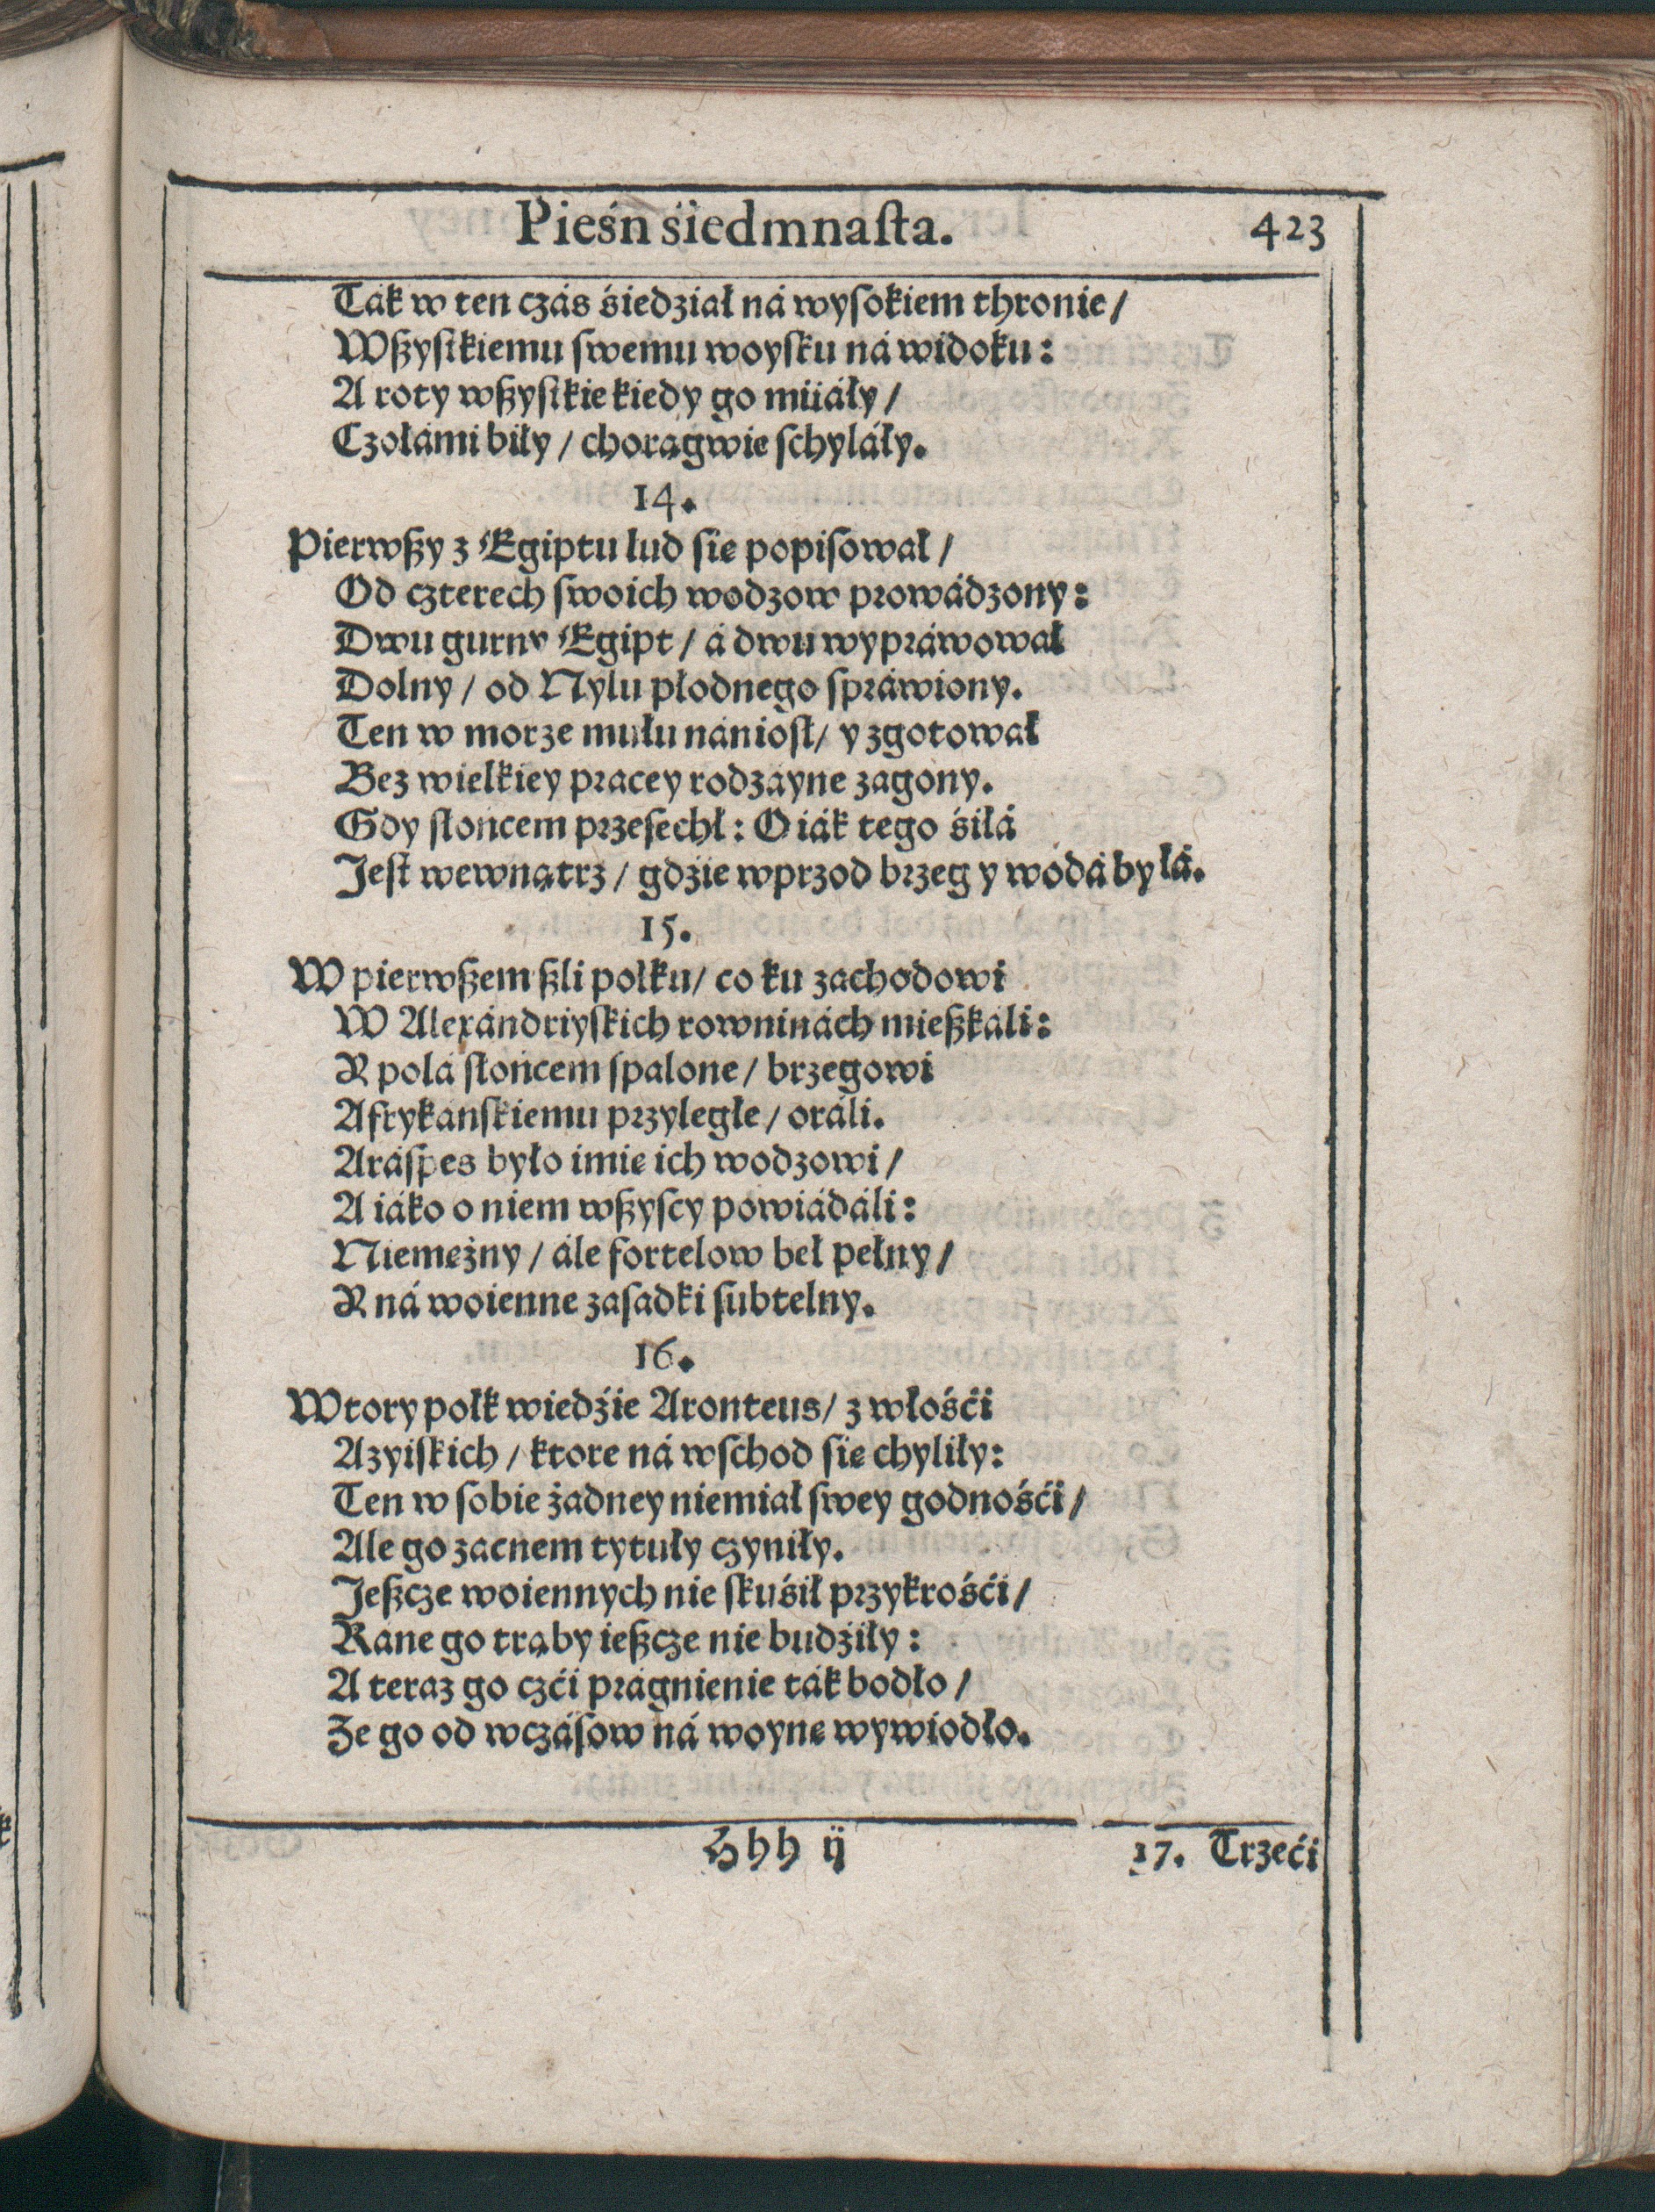 Pieśń siedmnaſta. 423
Ták w ten czás śiedział ná wyſokiem thronie/
Wßyſtkiemu ſwemu woyſku ná widoku:
A roty wßyſtkie kiedy go miiáły/
Czołámi biły/ chorągwie ſchyláły.
14.
Pierwßy z Egiptu lud ſię popiſował/
Od czterech ſwoich wodzow prowádzony:
Dwu gurny Egipt/ á dwu wypráwował
Dolny/ od Nylu płodnego ſpráwiony.
Ten w morze mułu nánioſł/ y zgotował
Bez wielkiey pracey rodzáyne zagony.
Gdy słońcem przeſechł: O iák tego śiłá
Jeſt wewnątrz/ gdźie wprzod brzeg y wodá byłá.
15.
W pierwßem ßli połku/ co ku zachodowi
W Alexándriyſkich rowninách mießkáli:
R polá słońcem ſpalone/ brzegowi
Afrykáńſkiemu przyległe/ oráli.
Aráſpes było imię ich wodzowi/
A iáko o niem wßyſcy powiádáli:
Niemężny/ ále fortelow beł pełny/
R ná woienne zaſadki ſubtelny.
16.
Wtory połk wiedźie Aronteus/ z włośći
Azyiſkich/ ktore ná wſchod ſię chyliły:
Ten w ſobie żadney niemiał ſwey godnośći/
Ale go zacnem tytuły czyniły.
Jeßcze woiennych nie ſkuśił przykrośći/
Rane go trąby ießcze nie budźiły:
A teraz go czći prágnienie ták bodło/
Ze go od wczáſow ná woynę wywiodło.
Hhh ij 17. Trzeći